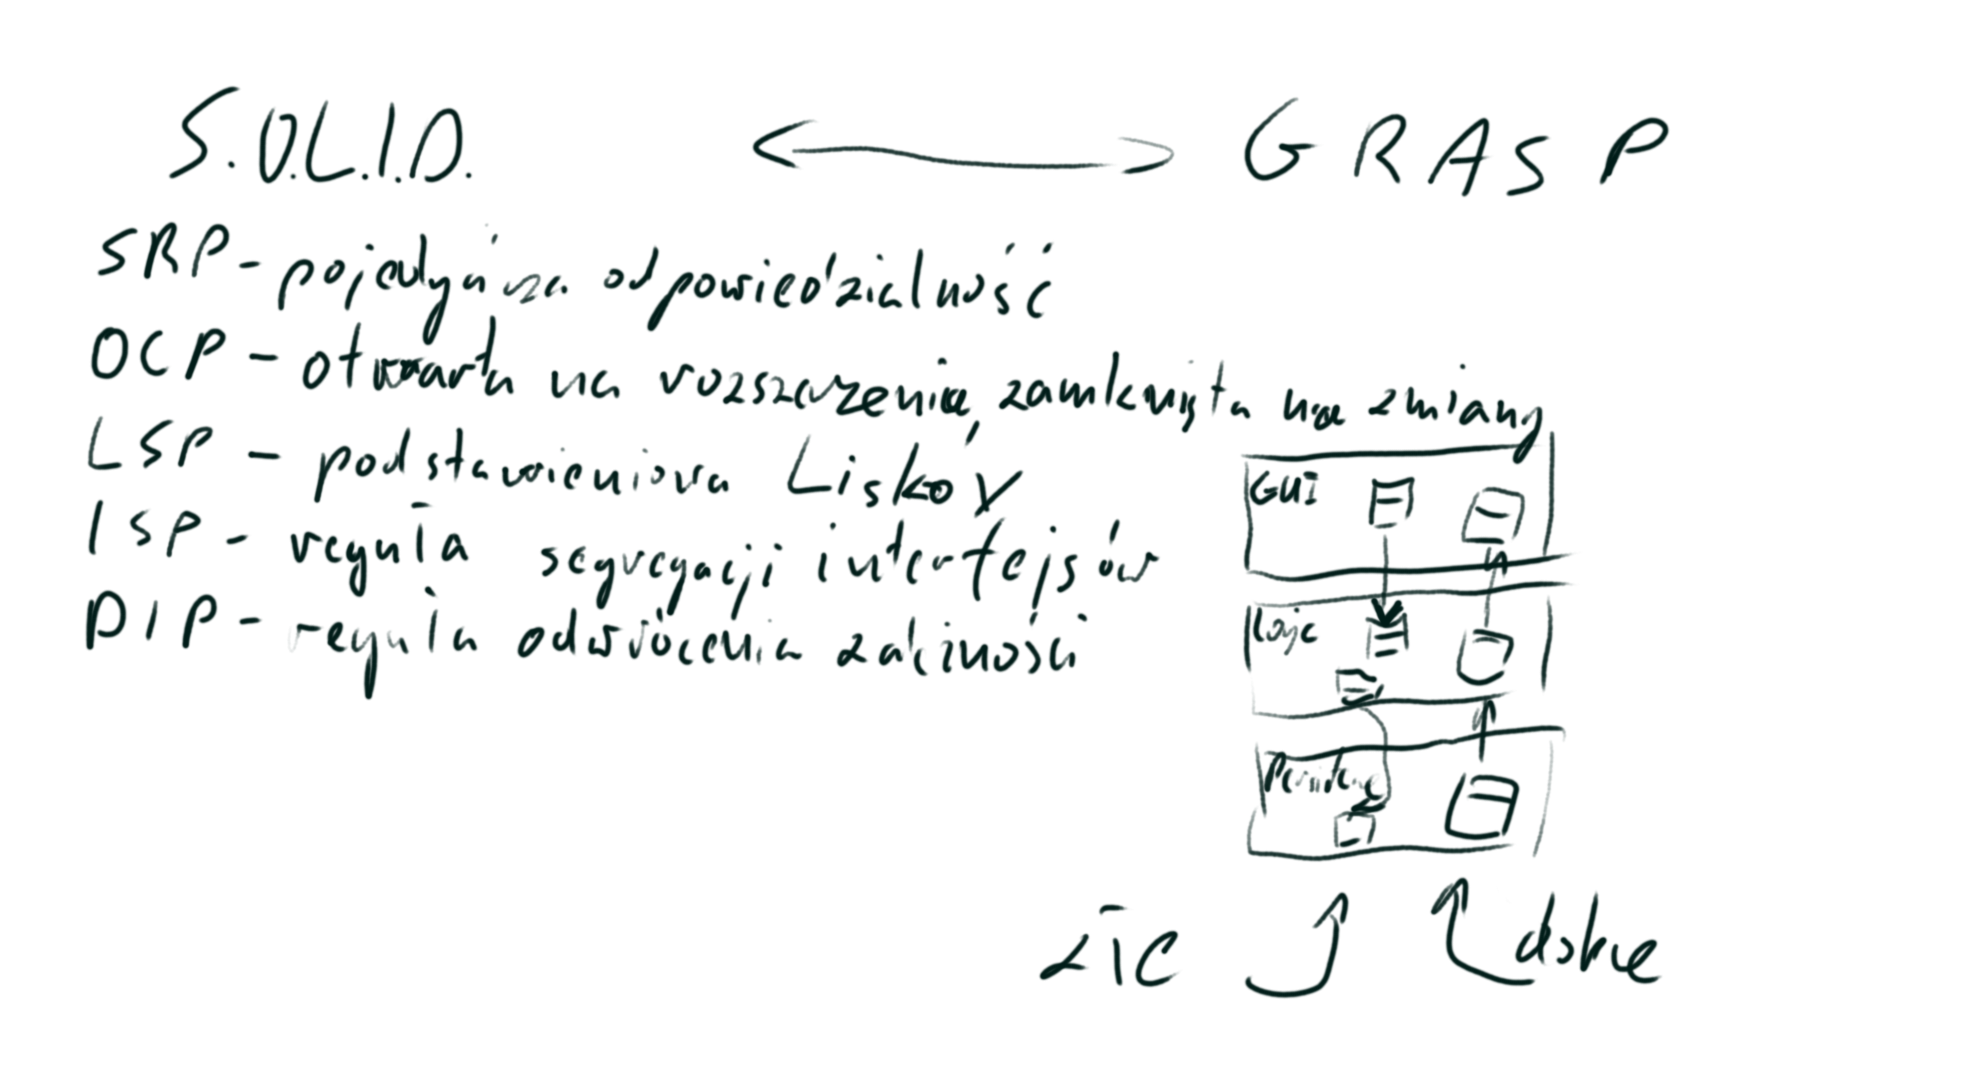 S.O.L.I.D. GRASP
SRP - pojedyńcza odpowiedzialność
OCP - otwarta na rozszerzenie, zamknięta na zmiany
LSP - podstawieniowa Liskov
ISP - reguła segregacji interfejsów
DIP - reguła odwrócenia zależności
GUI
Logic
źle dobrze